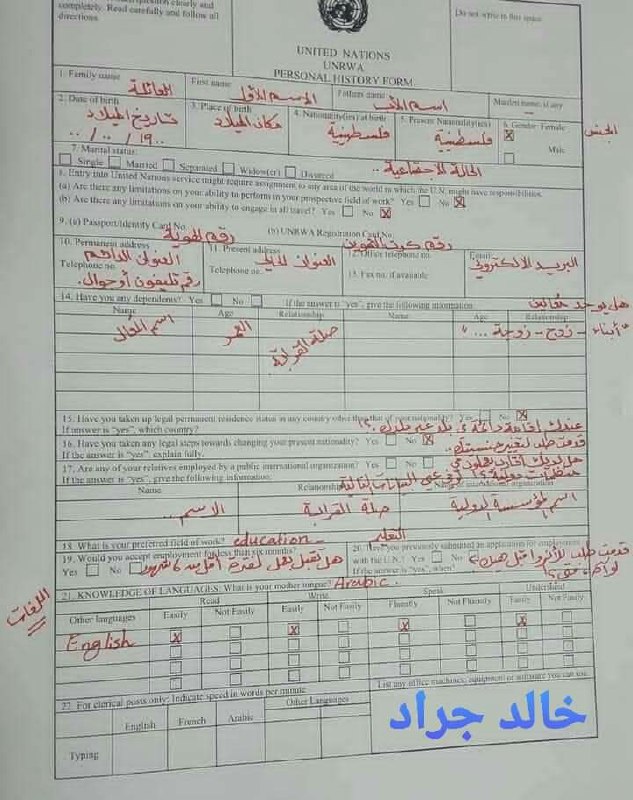 completely. Read carefully and follow all
directions.
Do not write in this space
UNITED NATIONS
UNRWA
PERSONAL HISTORY FORM
1. Family name
العائلة
First name
الاسم الأول
Fathers name
اسم الأب
Maiden name, if any
2. Date of birth
تاريخ الميلاد
../../19..
3. Place of birth
مكان الميلاد
4. Nationality(ies) at birth
فلسطينية
5. Present Nationality(ies)
فلسطينية
6. Gender Female
Male
الجنس
7. Marital status:
Single Married Separated Widow(er) Divorced
الحالة الاجتماعية..
8. Entry into United Nations service might require assignment to any area of the world in which the U.N. might have responsibilities.
(a) Are there any limitations on your ability to perform in your prospective field of work? Yes No
(b) Are there any limitations on your ability to engage in all travel? Yes No
9. (a) Passport/Identity Card No.
رقم الهوية
(b) UNRWA Registration Card No.
رقم كرت التموين
10. Permanent address
العنوان الدائم
Telephone no.
رقم تليفون أو جوال.
11. Present address
العنوان الحالي
Telephone no.
12. Office telephone no.
13. Fax no. if available
Email
البريد الالكتروني
14. Have you any dependents? Yes No If the answer is "yes", give the following information
هل يوجد
Name Age Relationship Name Age Relationship
اسم المعال
العمر
صلة القرابة
"أبناء - زوج - زوجة ..."
15. Have you taken up legal permanent residence status in any country other than that of your nationality? Yes No
If answer is "yes", which country?
16. Have you taken any legal steps towards changing your present nationality? Yes No
If the answer is "yes", explain fully.
17. Are any of your relatives employed by a public international organization? Yes No
If the answer is "yes", give the following information:
Name Relationship
الاسم ...
صلة القرابة
اسم المؤسسة الدولية
18. What is your preferred field of work? education
التعليم
19. Would you accept employment for less than six months?
Yes No
هل تقبل بعمل لفترة أقل من 6 شهور
20. Have you previously submitted an application for employment
with the U.N.? Yes No
If the answer is "yes", when?
اللغات
21. KNOWLEDGE OF LANGUAGES: What is your mother tongue? Arabic.
Read Write Speak Understand
Other languages Easily Not Easily Easily Not Easily Fluently Not Fluently Easily Not Easily
English
22. For clerical posts only: Indicate speed in words per minute
List any office machines, equipment or software you can use
English French Arabic Other Languages
Typing
خالد جراد